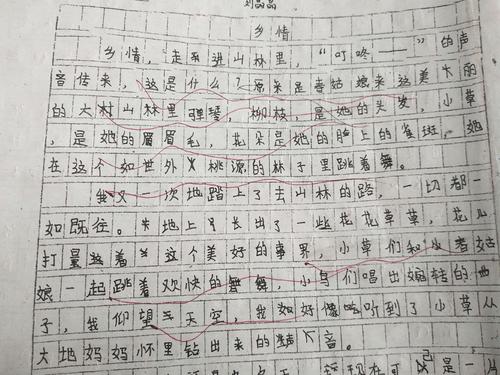 刘晶晶
乡情
乡情，走进山林里，“叮咚——”的声
音传来，这是什么？原来是春姑娘来这美丽
的大村山林里弹琴，柳枝，是她的头发，小草
，是她的眉眉毛，花朵是她的脸上的雀斑，她
在这个如世外桃源的林子里跳着舞。
我又一次地踏上了去山林的路，一切都一
如既往。大地上长出了一些花花草草，花儿
打量着这个美好的事界，小草们和
娘一起跳着欢快的舞，小鸟们唱出婉转的曲
子，我仰望天空，我如好像听到了小草从
大地妈妈怀里钻出来的声音。